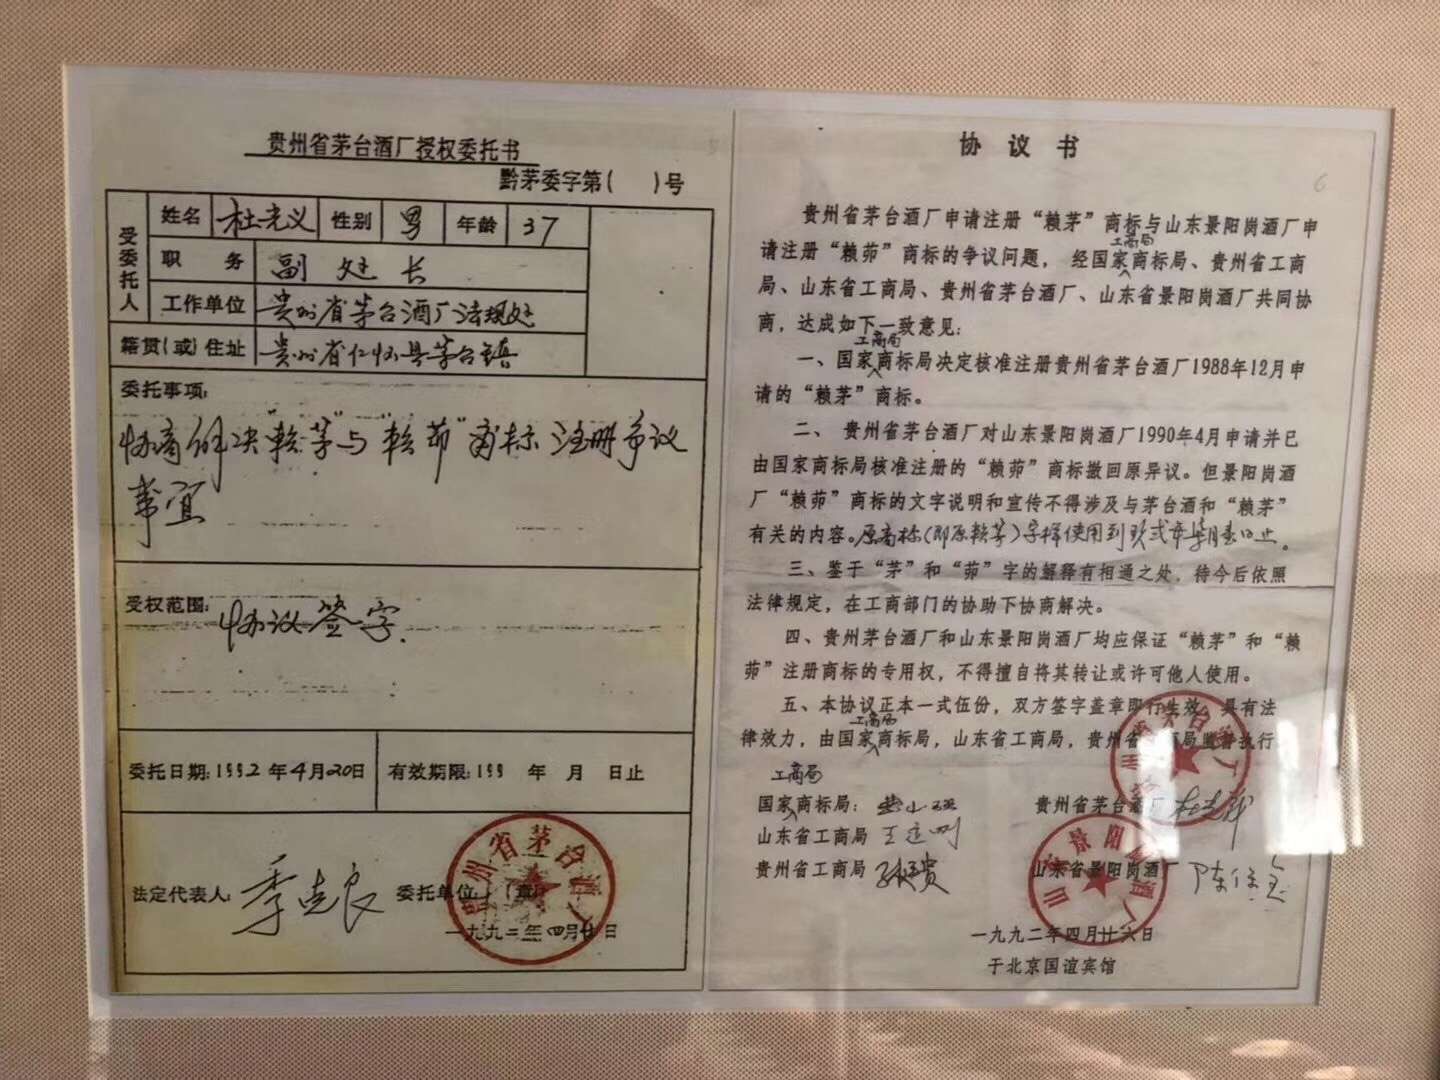 贵州省茅台酒厂授权委托书
黔茅委字第( )号
受委托人
姓名 杜光义 性别 男 年龄 37
职务 副处长
工作单位 贵州省茅台酒厂法规处
籍贯(或)住址 贵州省仁怀县茅台镇
委托事项:
协商解决“赖茅”与“赖茆”商标注册争议
事宜
受权范围: 协议签字.
委托日期:1992年4月20日 有效期限:199 年 月 日止
法定代表人: 季克良 委托单位: (章)
贵州省茅台酒厂
一九九二年四月廿日
协议书
6
贵州省茅台酒厂申请注册“赖茅”商标与山东景阳岗酒厂申
工商局
请注册“赖茆”商标的争议问题，经国家商标局、贵州省工商
局、山东省工商局、贵州省茅台酒厂、山东省景阳岗酒厂共同协
商，达成如下一致意见:
工商局
一、国家商标局决定核准注册贵州省茅台酒厂1988年12月申
请的“赖茅”商标。
二、贵州省茅台酒厂对山东景阳岗酒厂1990年4月申请并已
由国家商标局核准注册的“赖茆”商标撤回原异议。但景阳岗酒
厂“赖茆”商标的文字说明和宣传不得涉及与茅台酒和“赖茅”
有关的内容。原商标(即原赖茅)字样使用到玖贰年柒月壹日止。
三、鉴于“茅”和“茆”字的解释有相通之处，待今后依照
法律规定，在工商部门的协助下协商解决。
四、贵州茅台酒厂和山东景阳岗酒厂均应保证“赖茅”和“赖
茆”注册商标的专用权，不得擅自将其转让或许可他人使用。
五、本协议正本一式伍份，双方签字盖章即行生效，具有法
工商局
律效力，由国家商标局，山东省工商局，贵州省工商局监督执行
工商局
国家商标局:
贵州省茅台酒厂
山东省工商局
贵州省工商局
山东省景阳岗酒厂
一九九二年四月廿六日
于北京国谊宾馆